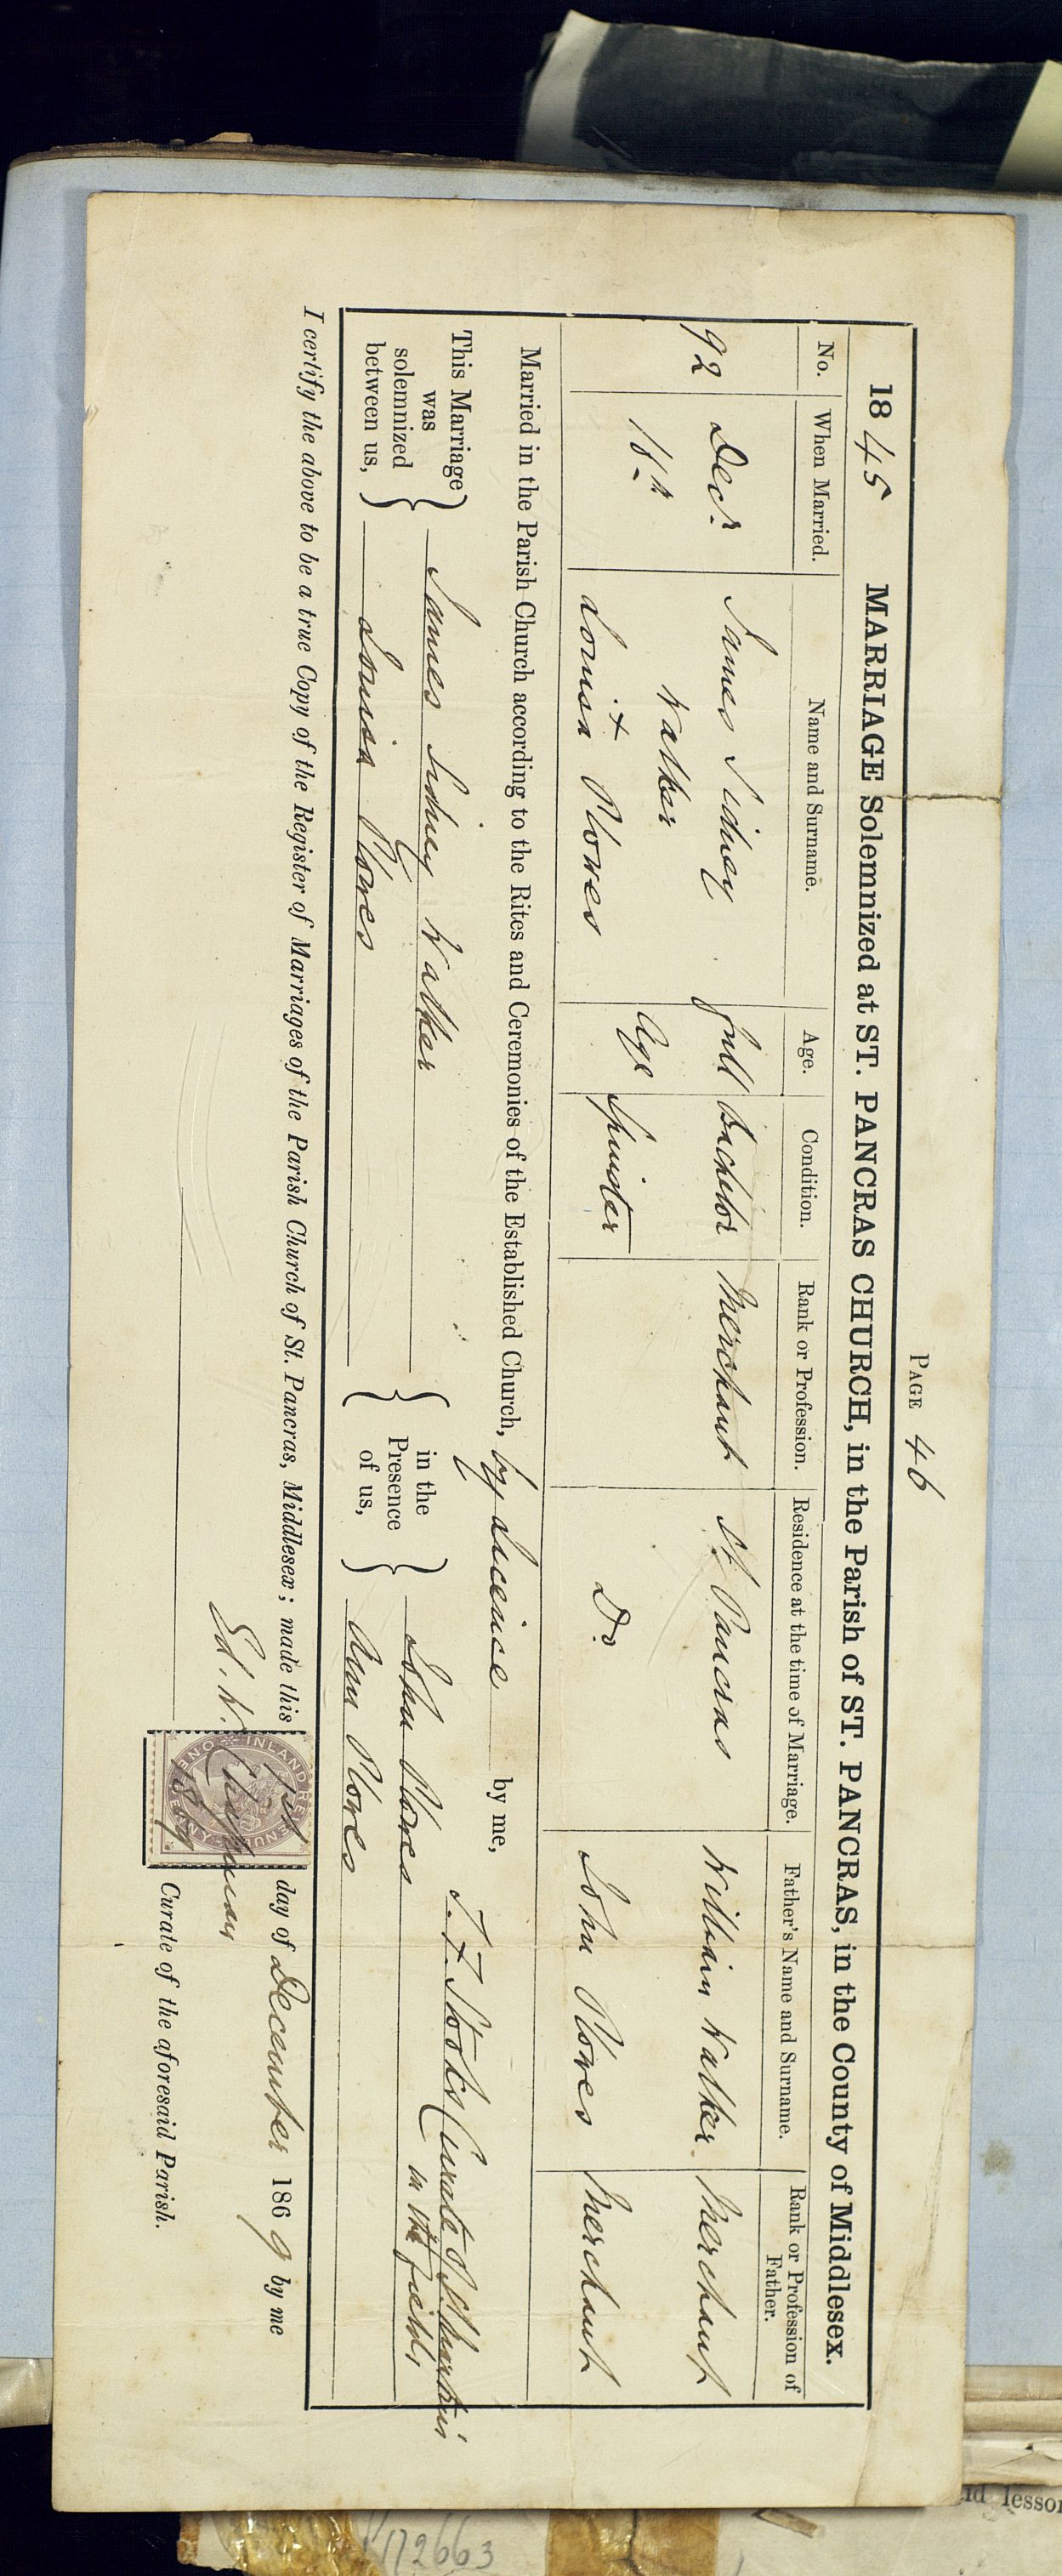 PAGE 46
1845 MARRIAGE Solemnized at ST. PANCRAS CHURCH, in the Parish of ST. PANCRAS, in the County of Middlesex.
No. When Married. Name and Surname. Age. Condition. Rank or Profession. Residence at the time of Marriage. Father's Name and Surname. Rank or Profession of Father.
92 Decr. James Sidney Full Bachelor Merchant St. Pancras William Walker Merchant
18th Walker Age
& Spinster
Louisa Plowes Do. John Plowes Merchant
Married in the Parish Church according to the Rites and Ceremonies of the Established Church, by Licence by me,
T. F. Stooks Curate of St. Martin's
in the Fields
This Marriage was solemnized between us, James Sidney Walker in the Presence of us, John Plowes
Louisa Plowes Ann Plowes
I certify the above to be a true Copy of the Register of Marriages of the Parish Church of St. Pancras, Middlesex; made this 1st day of December 1869 by me
Ed. W. Chapman
Curate of the aforesaid Parish.
INLAND REVENUE
ONE PENNY
1869
id lesson
172663